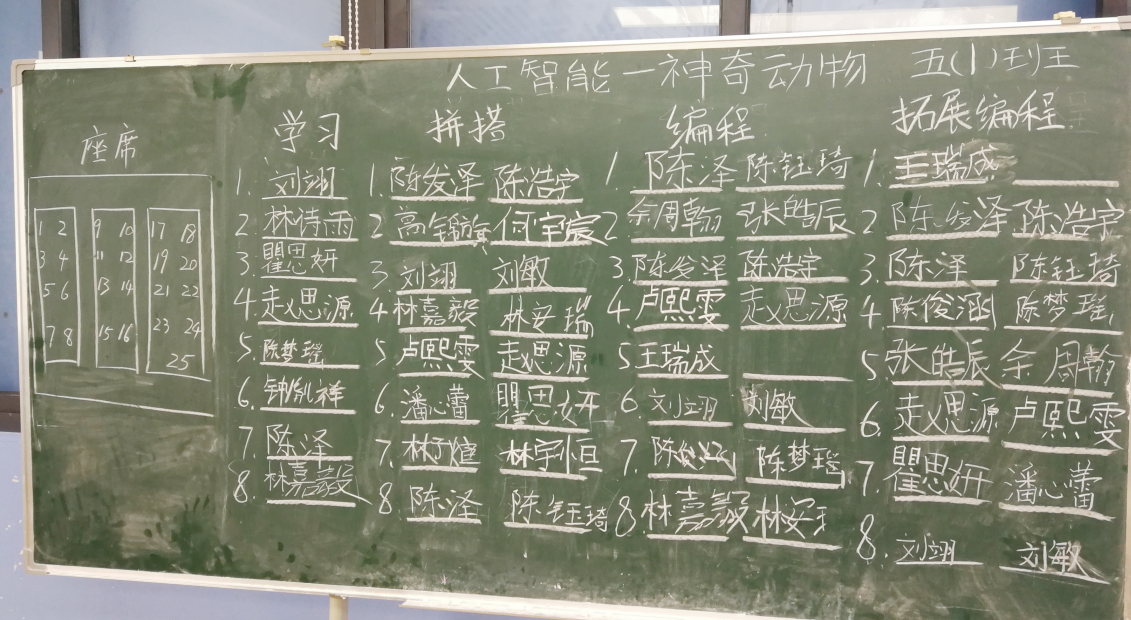 人工智能－神奇动物 五(1)班
座席
1 2 9 10 17 18
3 4 11 12 19 20
5 6 13 14 21 22
7 8 15 16 23 24
25
学习
1. 刘翊
2. 林诗雨
3. 瞿思妍
4. 赵思源
5. 陈梦瑶
6. 钟胤祥
7. 陈泽
8. 林嘉毅
拼搭
1. 陈发泽 陈浩宇
2 高 何宇宸
3. 刘翊 刘敏
4 林嘉毅 林安瑞
5 卢熙雯 赵思源
6. 潘心蕾 瞿思妍
7. 林子煊 林宇恒
8 陈泽 陈钰琦
编程
1. 陈泽 陈钰琦
2 余周翰 张皓辰
3. 陈发泽 陈浩宇
4. 卢熙雯 赵思源
5 王瑞成
6 刘翊 刘敏
7. 陈俊涵 陈梦瑶
8 林嘉毅 林安
拓展编程
1. 王瑞成
2 陈发泽 陈浩宇
3. 陈泽 陈钰琦
4. 陈俊涵 陈梦瑶
5. 张皓辰 余周翰
6. 赵思源 卢熙雯
7. 瞿思妍 潘心蕾
8. 刘翊 刘敏